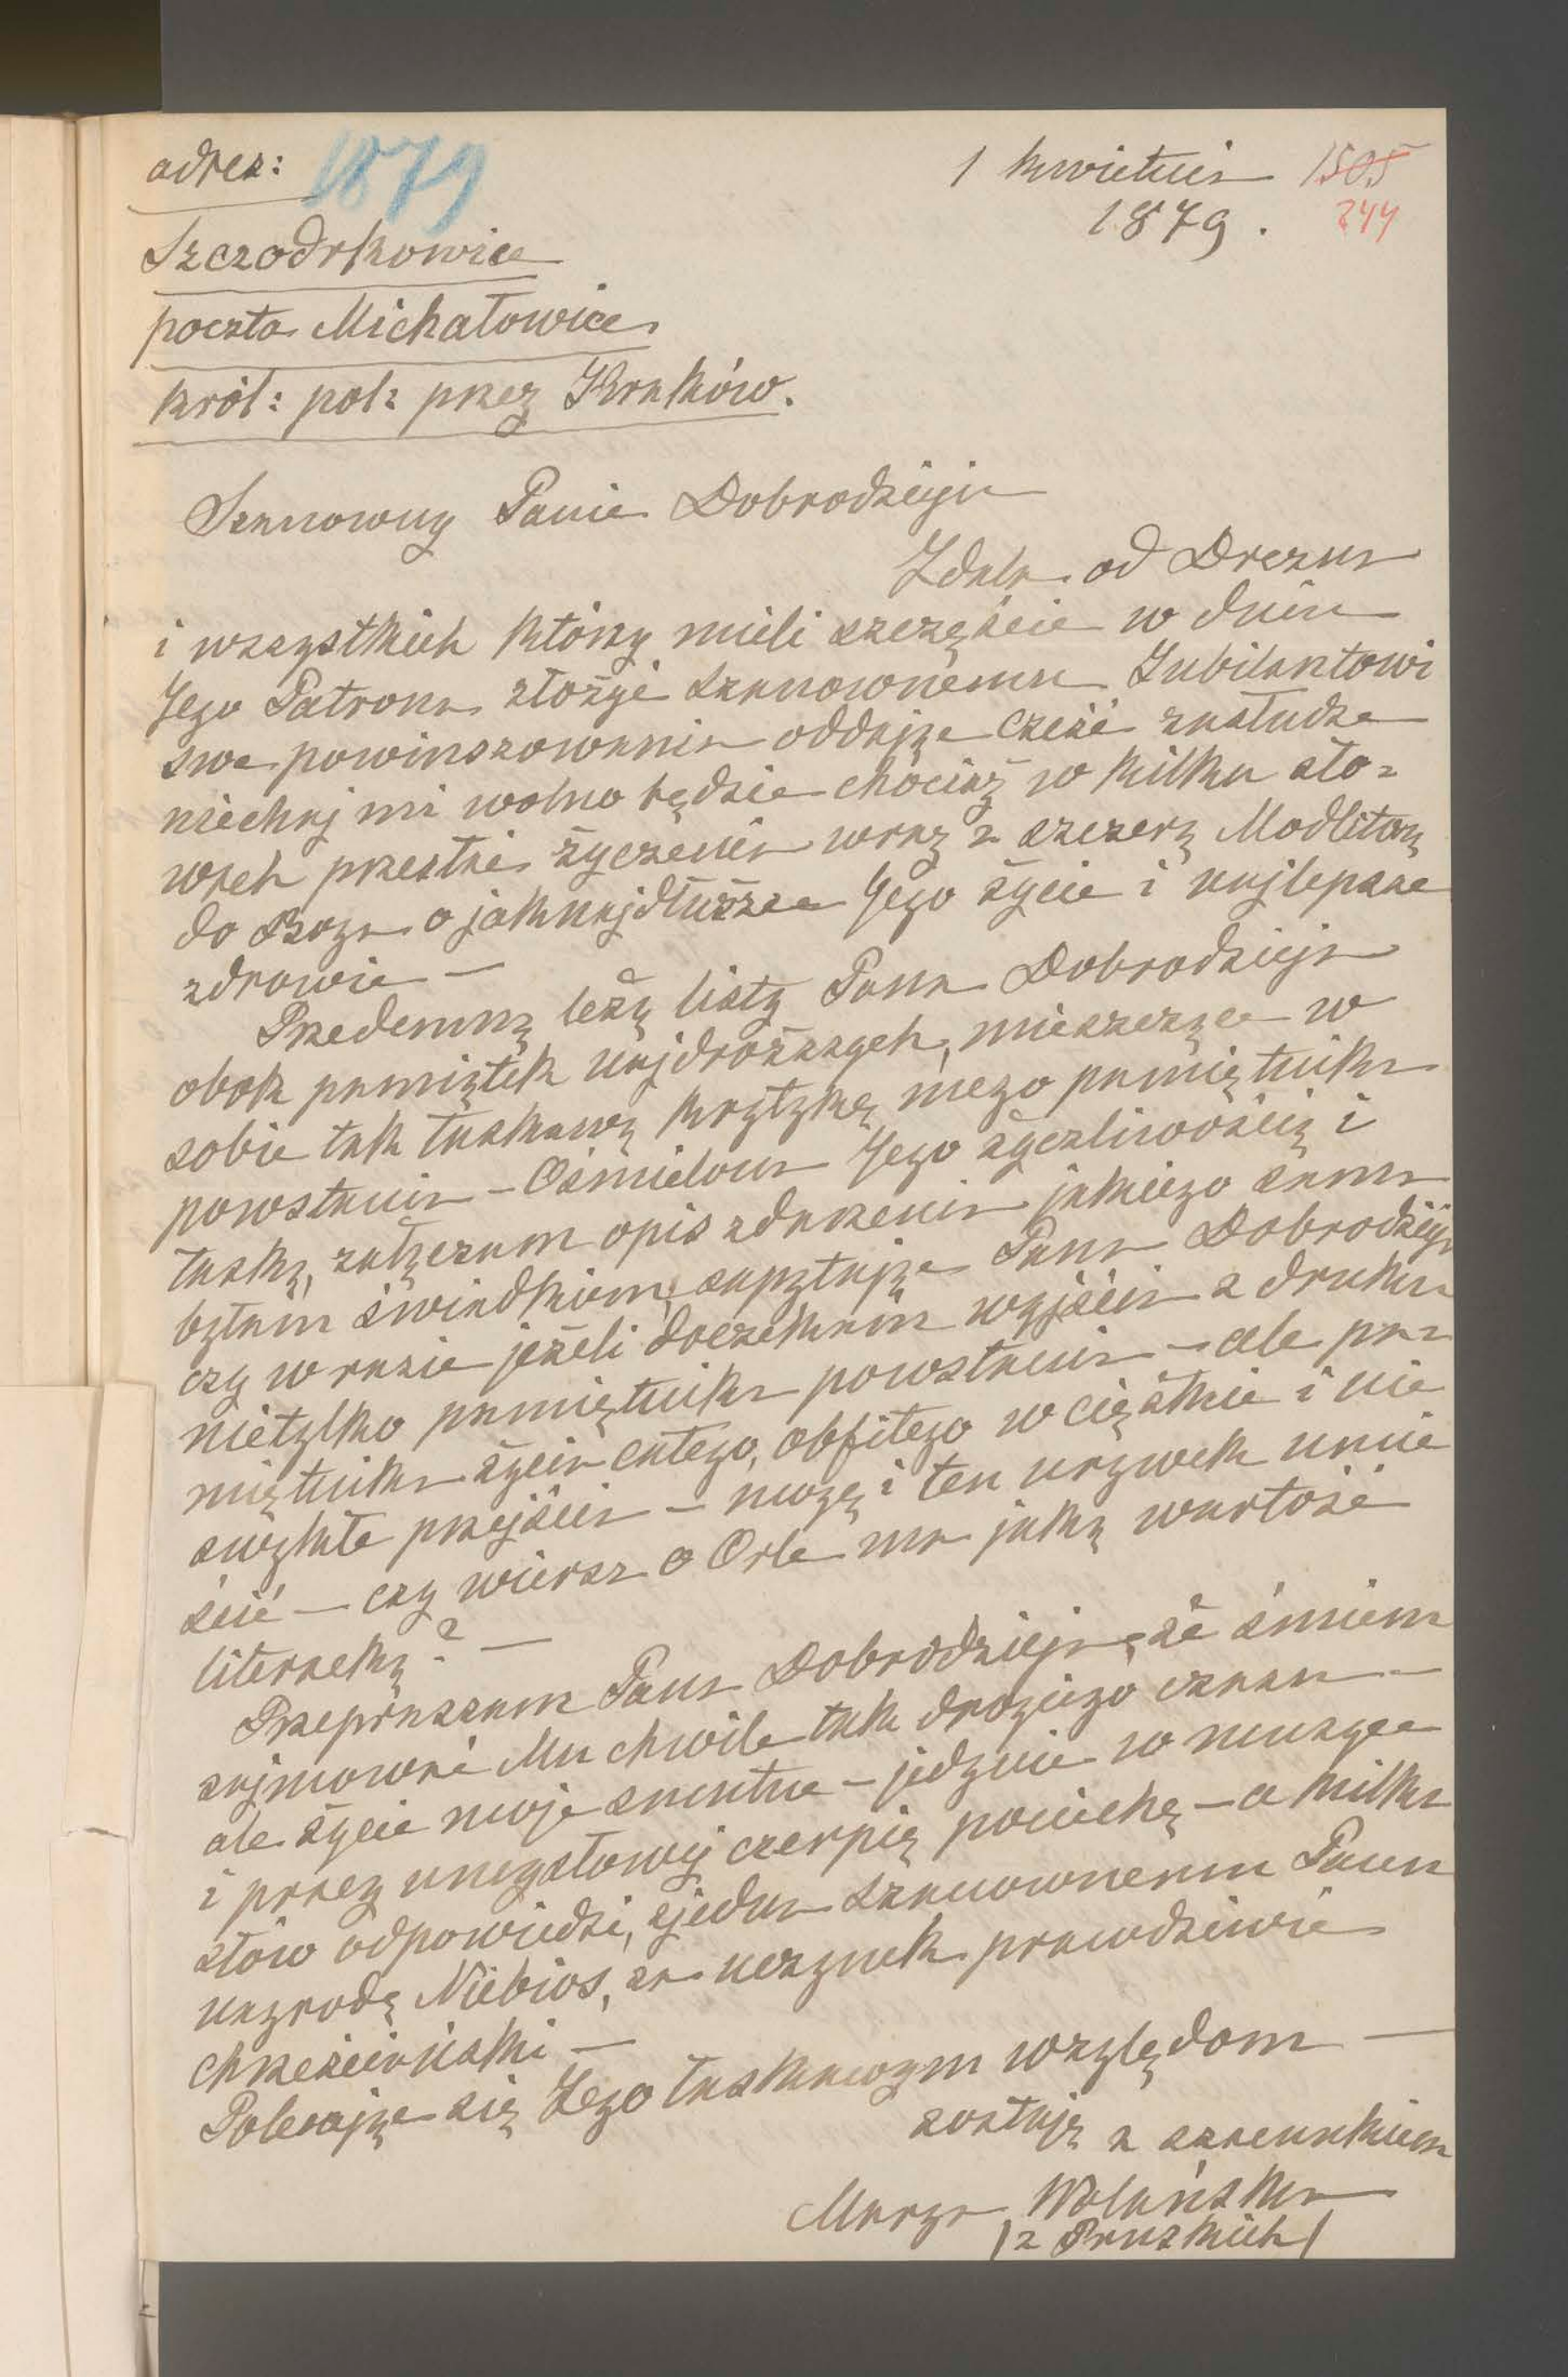 adres: 1879
1 kwietnia 1505
1879. 244
Szczodrkowice
poczta Michałowice
król: pol: przez Kraków.
Szanowny Panie Dobrodzieju
Zdala od Drezna
i wszystkich którzy mieli szczęście w dniu
Jego Patrona złożyć szanownemu Jubilantowi
swe powinszowania oddając cześć zasłudze
niechaj mi wolno będzie chociaż w kilku sło=
wach przesłać życzenia wraz z szczerą Modlitwą
do Boga o jaknajdłuższe Jego życie i najlepsze
zdrowie —
Przedemną leżą listy Pana Dobrodzieja
obok pamiątek najdroższych, mieszcząc w
sobie tak łaskawą krytykę mego pamiętnika
powstania – Ośmielona Jego życzliwością i
łaską, załączam opis zdarzenia jakiego sama
byłam świadkiem, zapytując Pana Dobrodzieja
czy w razie jeżeli doczekam wyjścia z druku
nietylko pamiętnika powstania – ale pa=
miętnika życia całego, obfitego w ciężkie i nie
zwykłe przejścia – mogę i ten urywek umie
ścić — czy wiersz o Orle ma jaką wartość
literacką? —
Przepraszam Pana Dobrodzieja, że śmiem
zajmować Mu chwile tak drogiego czasu —
ale życie moje smutne – jedynie w muzyce
i pracy umysłowej czerpię pociechę – a kilka
słów odpowiedzi, zjedna szanownemu Panu
nagrodę Niebios, za uczynek prawdziwie
chrześciański —
Polecając się Jego łaskawym względom —
zostaję z szacunkiem
Marya Wolańska
/z Pruskich/